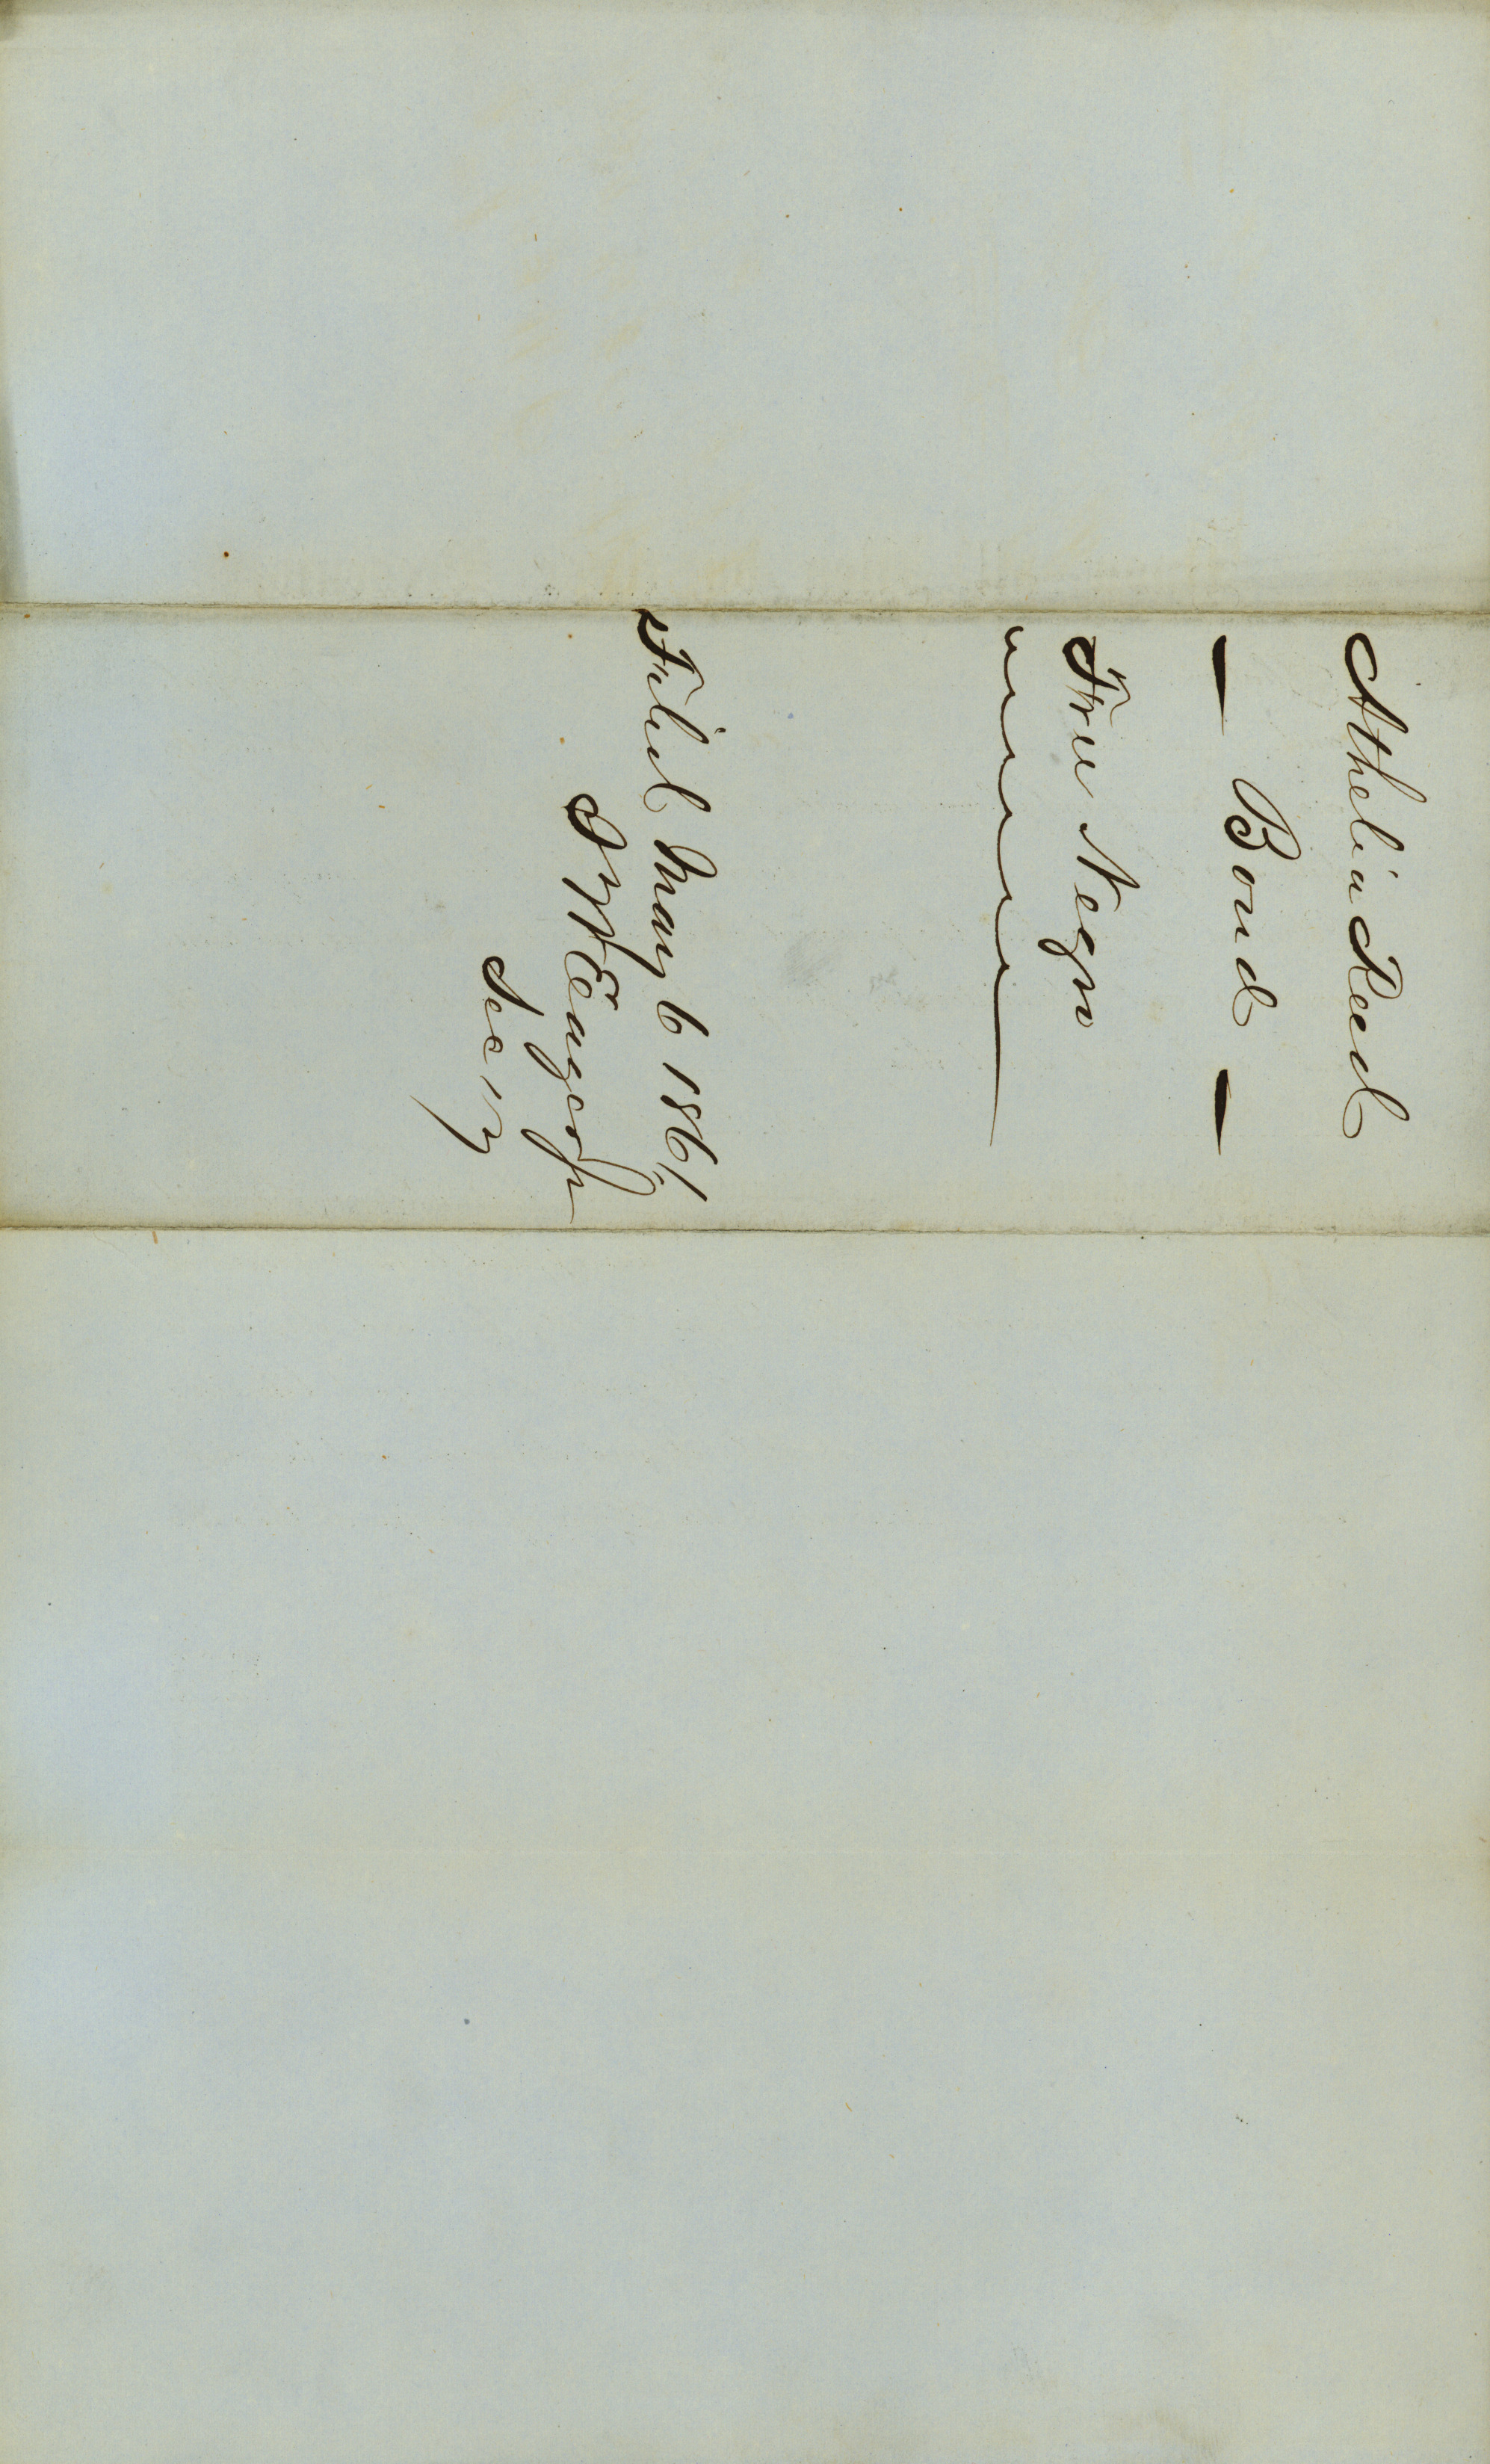 Athelia Reed
— Bond —
Free Negro
Filed May 6 1861
Secty